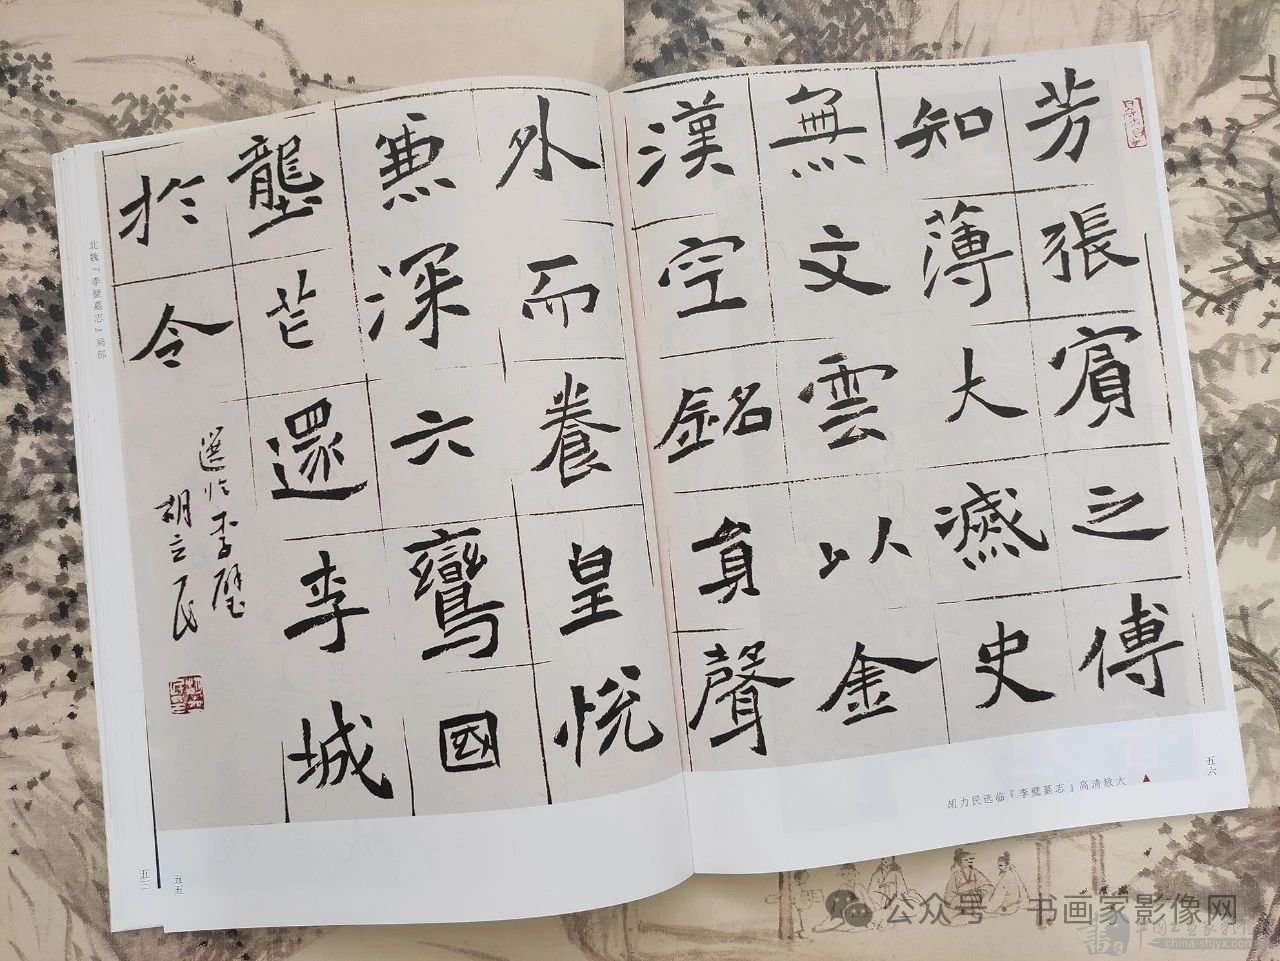 芳張賓之傅
知薄大減史
無文雲以金
漢空銘真聲
外而養皇悅
惠深六鸞國
壟芒還李城
於令
選临李璧
胡立民
北魏『李璧墓志』局部
五三
五五
五六
胡力民选临『李璧墓志』高清放大
公众号·书画家影像网
china-shjyx.com